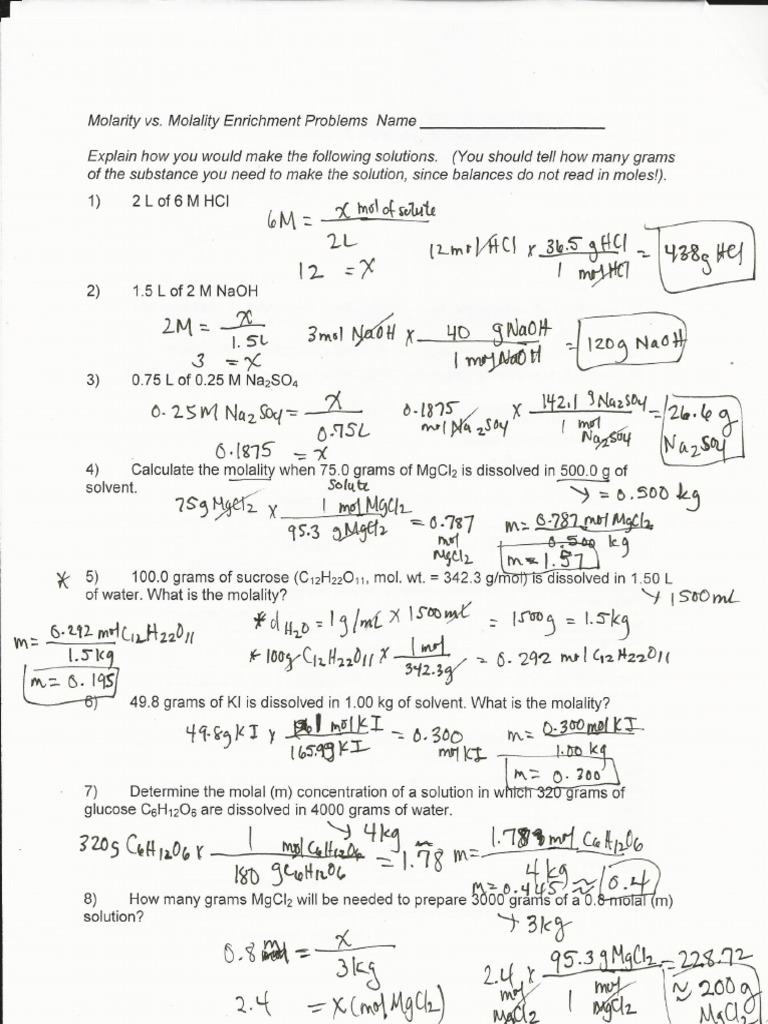 Molarity vs. Molality Enrichment Problems Name
Explain how you would make the following solutions. (You should tell how many grams
of the substance you need to make the solution, since balances do not read in moles!).
1) 2 L of 6 M HCl
6M = x mol of solute / 2L
12 = x
12 mol HCl x 36.5 g HCl / 1 mol HCl = 438g HCl
2) 1.5 L of 2 M NaOH
2M = x / 1.5L
3 = x
3 mol NaOH x 40 g NaOH / 1 mol NaOH = 120g NaOH
3) 0.75 L of 0.25 M Na₂SO₄
0.25M Na₂SO₄ = x / 0.75L
0.1875 = x
0.1875 mol Na₂SO₄ x 142.1 g Na₂SO₄ / 1 mol Na₂SO₄ = 26.6 g Na₂SO₄
4) Calculate the molality when 75.0 grams of MgCl₂ is dissolved in 500.0 g of
solvent.
solute
→ = 0.500 kg
75g MgCl₂ x 1 mol MgCl₂ / 95.3 g MgCl₂ = 0.787 mol MgCl₂
m = 0.787 mol MgCl₂ / 0.500 kg
m = 1.57
* 5) 100.0 grams of sucrose (C₁₂H₂₂O₁₁, mol. wt. = 342.3 g/mol) is dissolved in 1.50 L
of water. What is the molality?
→ 1500mL
* d H₂O = 1g/mL x 1500mL = 1500g = 1.5kg
* 100g C₁₂H₂₂O₁₁ x 1 mol / 342.3g = 0.292 mol C₁₂H₂₂O₁₁
m = 0.292 mol C₁₂H₂₂O₁₁ / 1.5kg
m = 0.195
6) 49.8 grams of KI is dissolved in 1.00 kg of solvent. What is the molality?
49.8g KI x 1 mol KI / 165.99g KI = 0.300 mol KI
m = 0.300 mol KI / 1.00 kg
m = 0.300
7) Determine the molal (m) concentration of a solution in which 320 grams of
glucose C₆H₁₂O₆ are dissolved in 4000 grams of water.
→ 4kg
320g C₆H₁₂O₆ x 1 mol C₆H₁₂O₆ / 180 g C₆H₁₂O₆ = 1.78
m = 1.78 mol C₆H₁₂O₆ / 4 kg
m = 0.445 ≈ 0.4
8) How many grams MgCl₂ will be needed to prepare 3000 grams of a 0.8 molal (m)
solution?
→ 3kg
0.8 m = x / 3kg
2.4 = x (mol MgCl₂)
2.4 mol MgCl₂ x 95.3g MgCl₂ / 1 mol MgCl₂ = 228.72
≈ 200g MgCl₂